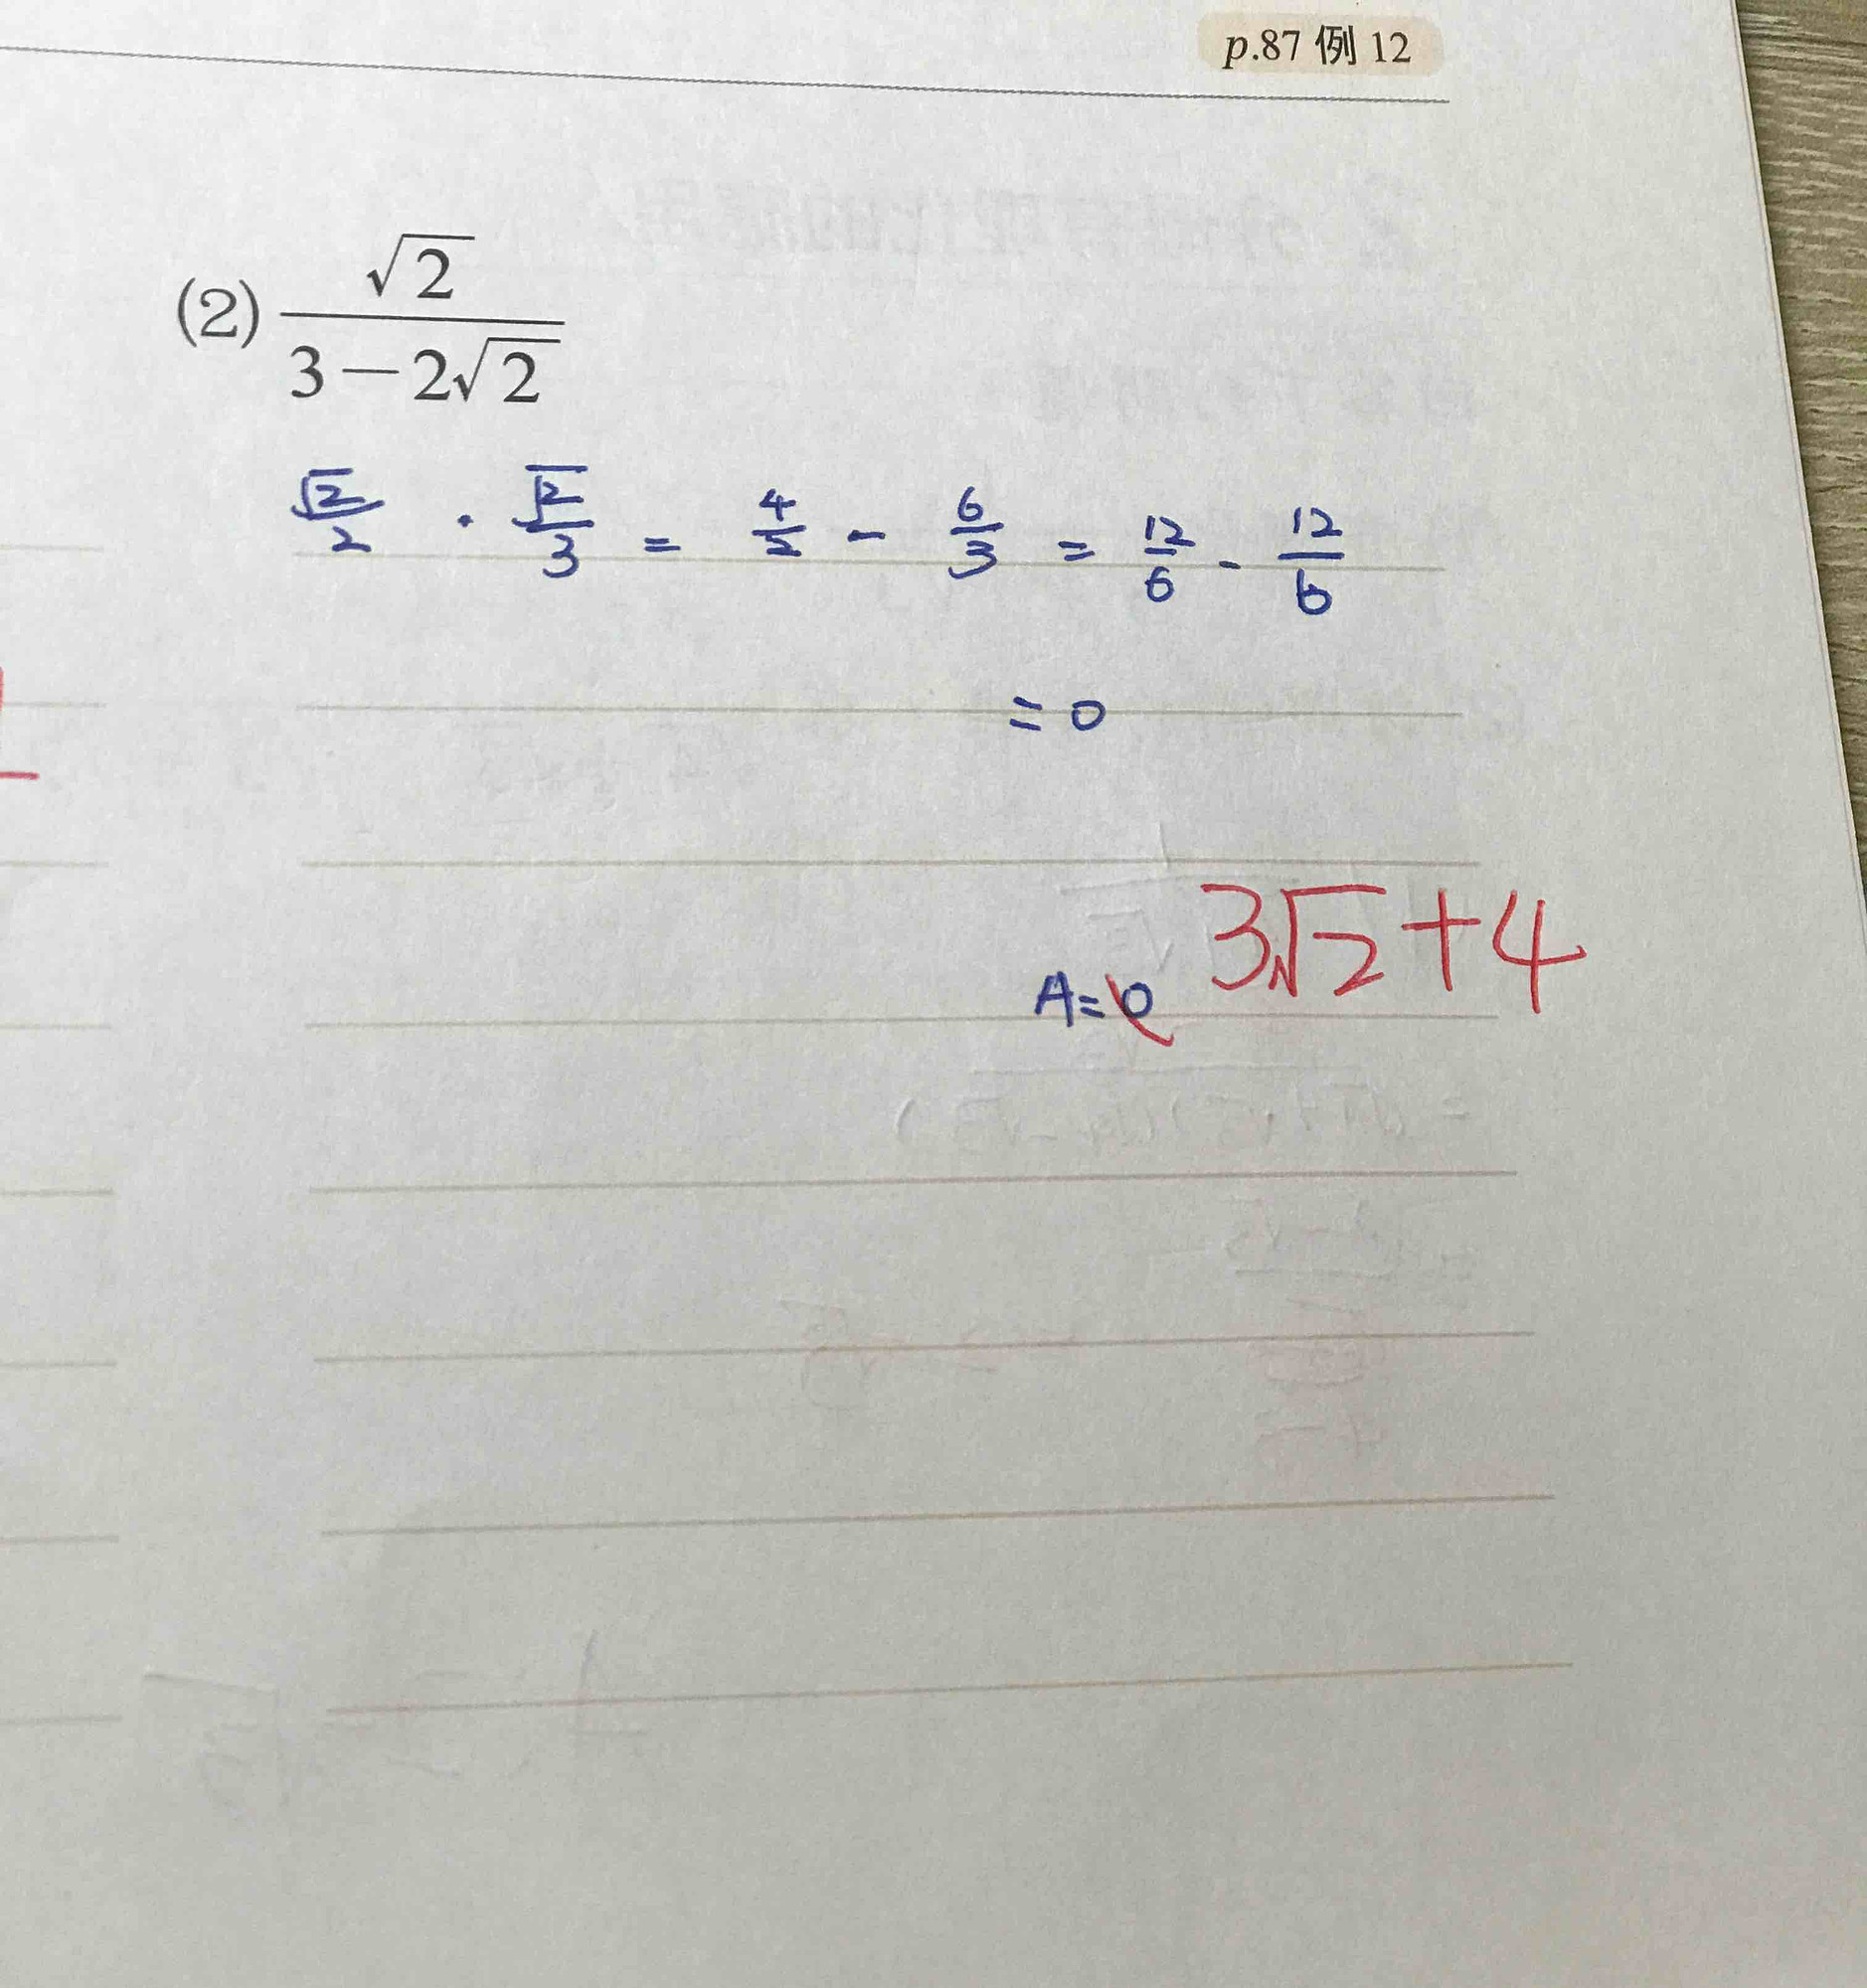 p.87 例 12
(2) √2 / (3−2√2)
√2/2 · √2/3 = 4/2 - 6/3 = 12/6 - 12/6
= 0
3√2+4
A=0